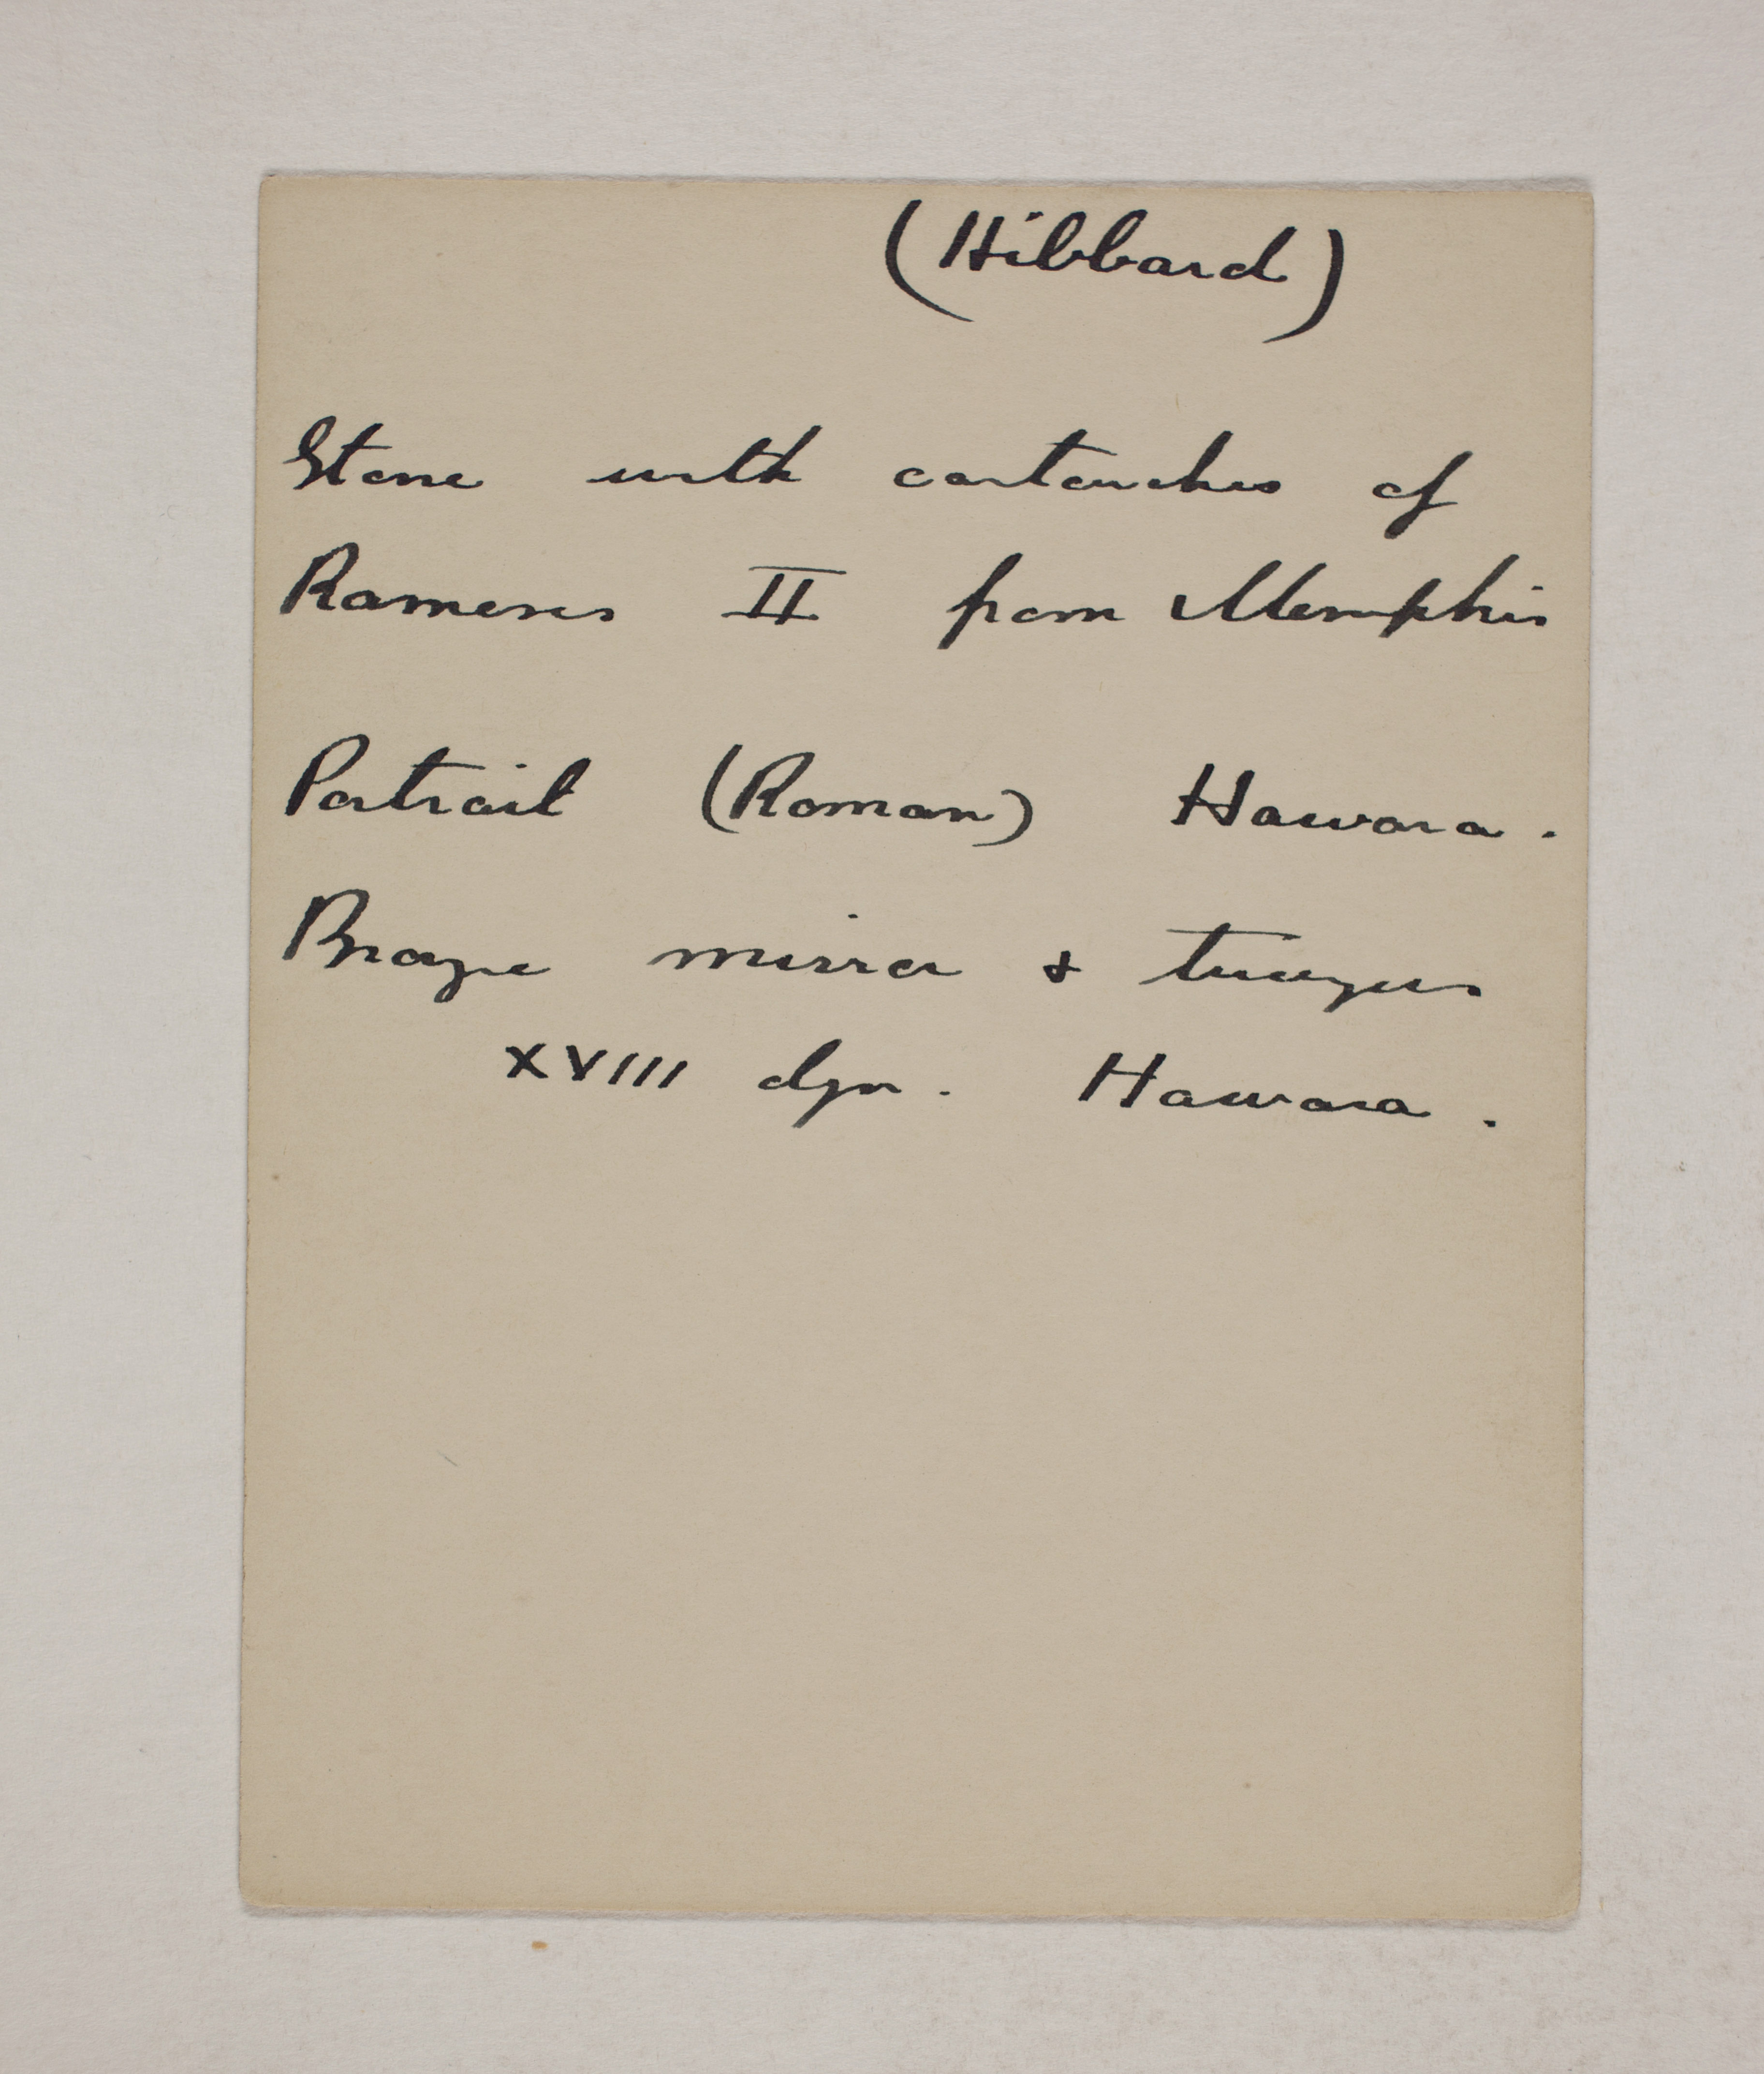 (Hibbard)
Stone with cartouches of
Rameses II from Memphis
Portrait (Roman) Hawara.
Bronze mirror & tweezers
XVIII dyn. Hawara.